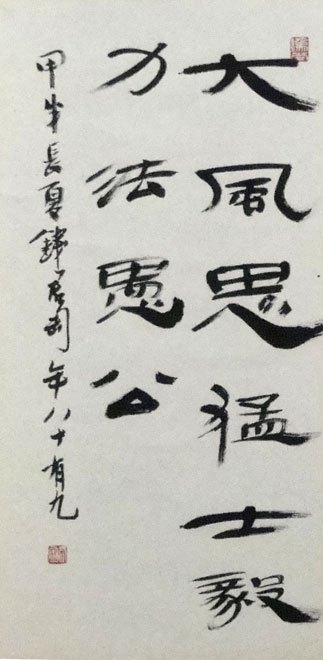 大风思猛士毅
力法愚公
甲午長夏钱君匋年八十有九